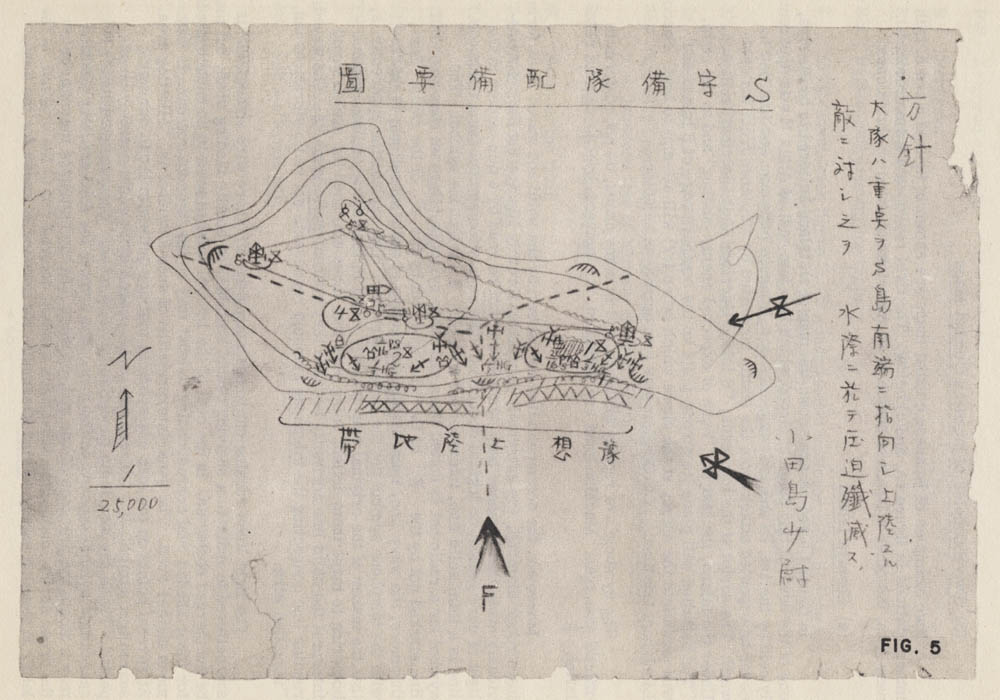 S守備隊配備要圖
方針
大隊ハ重点ヲS島南端ニ指向シ上陸スル
敵ニ対シ之ヲ 水際ニ於テ圧迫殲滅ス
小田島少尉
N
1
25,000
豫想上陸地帯
F
FIG. 5